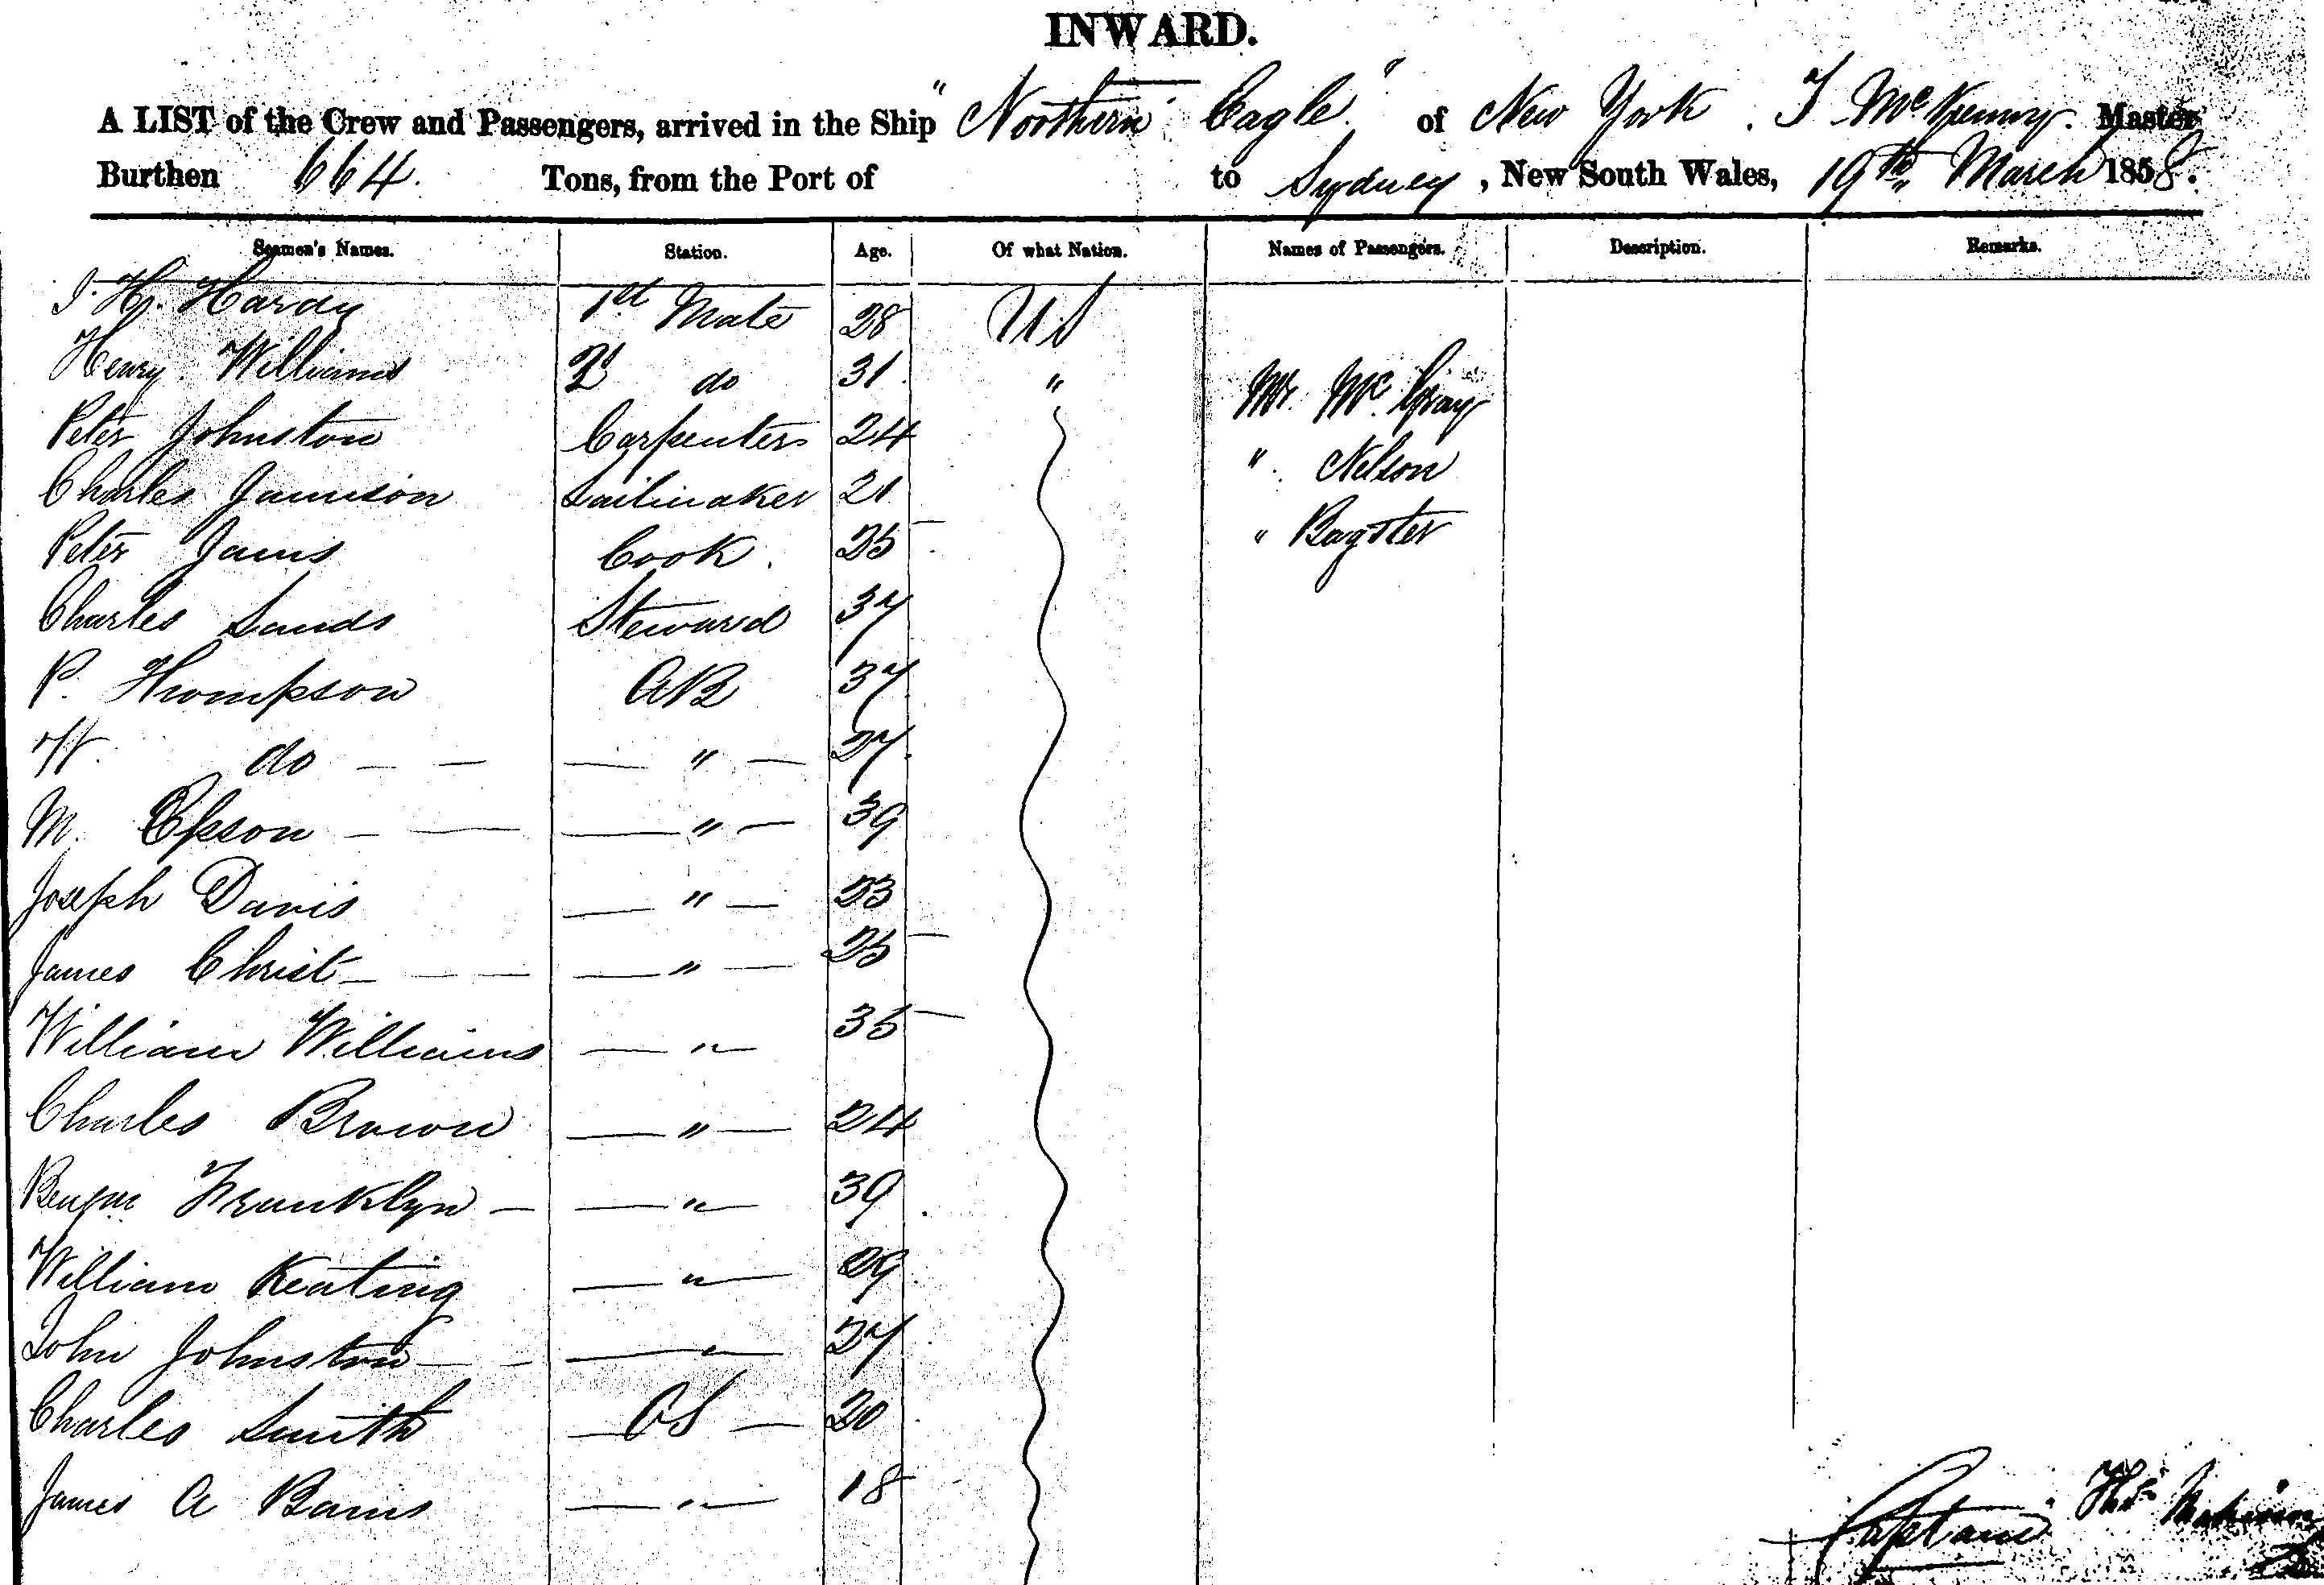 INWARD.
A LIST of the Crew and Passengers, arrived in the Ship "Northern Eagle" of New York. T McKenny. Master
Burthen 664. Tons, from the Port of to Sydney, New South Wales, 19th March 1858.
Seamen's Names. Station. Age. Of what Nation. Names of Passengers. Description. Remarks.
J. H. Hardy 1st Mate 28 US
Henry Williams 2d do 31 " Mr. Mc. Gray
Peter Johnston Carpenter 24
Charles Jamison Sailmaker 21 " Nelson
Peter Jams Cook. 25 " Bagster
Charles Sands Steward 37
P. Thompson AB 37
W. do — — — " — 27
M. Epson — — — " — 39
Joseph Davis — " — 23
James Christ — — — — " — 25
William Williams — " — 35
Charles Brown — " — 24
Benjm Franklyn — — " — 39
William Keating — " — 29
John Johnston — — — " — 27
Charles Smith — OS — 20
James A Barns — " — 18
Thos
Captain